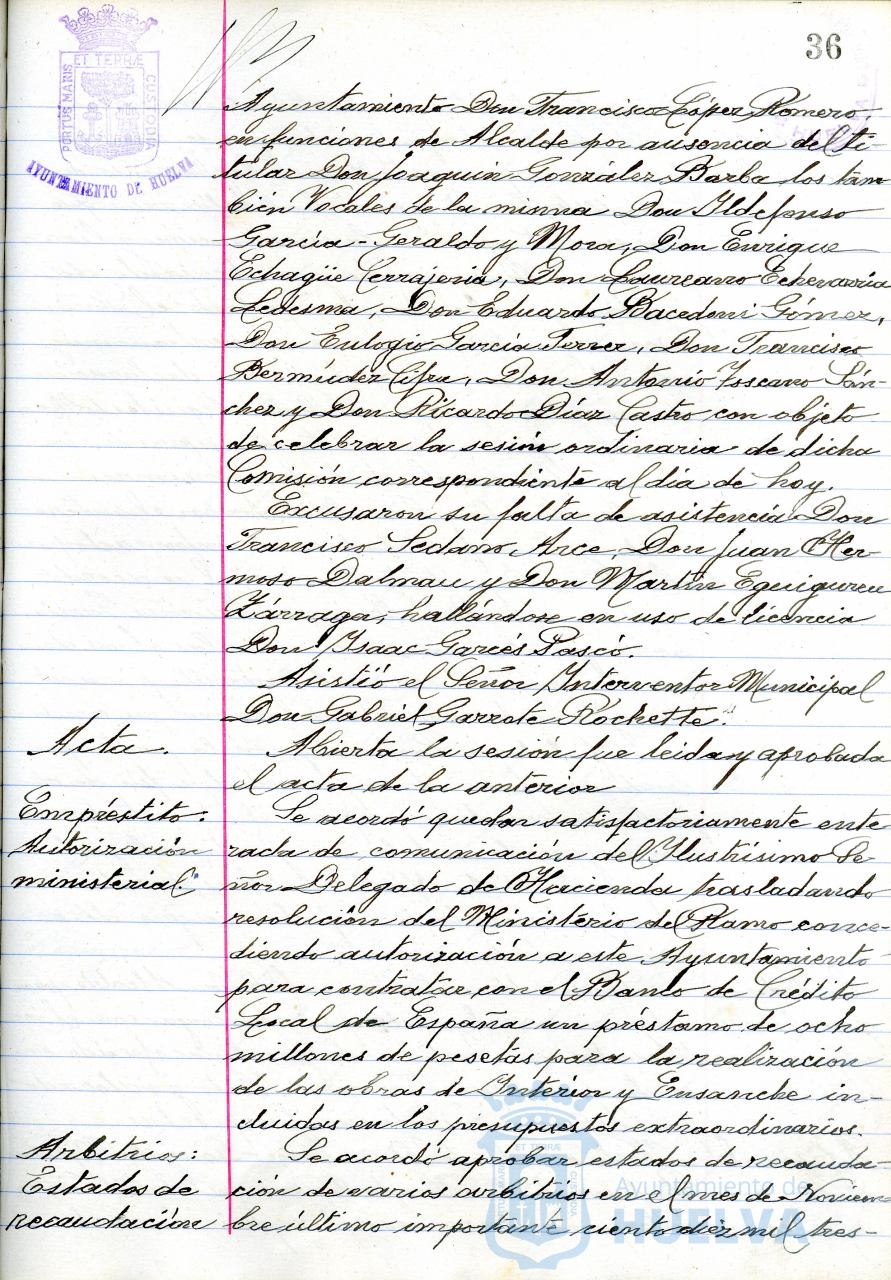 36
PORTUS MARIS ET TERRÆ CUSTODIA
AYUNTAMIENTO DE HUELVA
Ayuntamiento Don Francisco López Romero,
en funciones de Alcalde por ausencia del ti-
tular Don Joaquin Gonzalez Barba los tam-
bién Vocales de la misma Don Ildefonso
García-Geraldo y Mora, Don Enrique
Echagüe Cerrajeria, Don Laureano Echevarria
Ledesma, Don Eduardo Bacedoni Gómez,
Don Eulogio García Ferrer, Don Francisco
Bermúdez Cifre, Don Antonio Toscano Sán-
chez y Don Ricardo Díaz Castro con objeto
de celebrar la sesión ordinaria de dicha
Comisión correspondiente al día de hoy.
Excusaron su falta de asistencia Don
Francisco Sedano Arce, Don Juan Her-
moso Dalmau y Don Martín Eguiguren
Zárraga, hallándose en uso de licencia
Don Isaac Garcés Pascó.
Asistió el Señor Interventor Municipal
Don Gabriel Garrote Rochette.
Acta.
Abierta la sesión fue leida y aprobada
el acta de la anterior
Empréstito.
Autorización
ministerial.
Se acordó quedar satisfactoriamente ente
rada de comunicación del Ilustrísimo Se-
ñor Delegado de Hacienda trasladando
resolución del Ministério del Ramo conce-
diendo autorización a este Ayuntamiento
para contratar con el Banco de Crédito
Local de España un préstamo de ocho
millones de pesetas para la realización
de las obras de Interior y Ensanche in-
cluidas en los presupuestos extraordinarios.
Arbitrios:
Estados de
recaudación
Se acordó aprobar estados de recauda-
ción de varios arbitrios en el mes de Noviem-
bre último importante ciento diez mil tres-
Ayuntamiento de
HUELVA